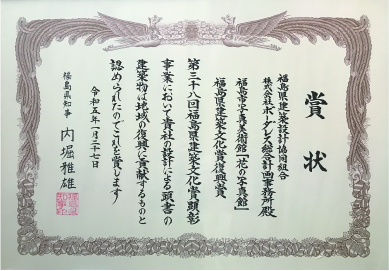 賞状
福島県建築設計協同組合
株式会社ボーダレス総合計画事務所殿
福島市写真美術館「花の写真館」
福島県建築文化賞復興賞
第三十八回福島県建築文化賞顕彰
事業において貴社の設計による頭書の
建築物は地域の復興に貢献するものと
認められたのでこれを賞します
令和五年一月二十七日
福島県知事 内堀雅雄